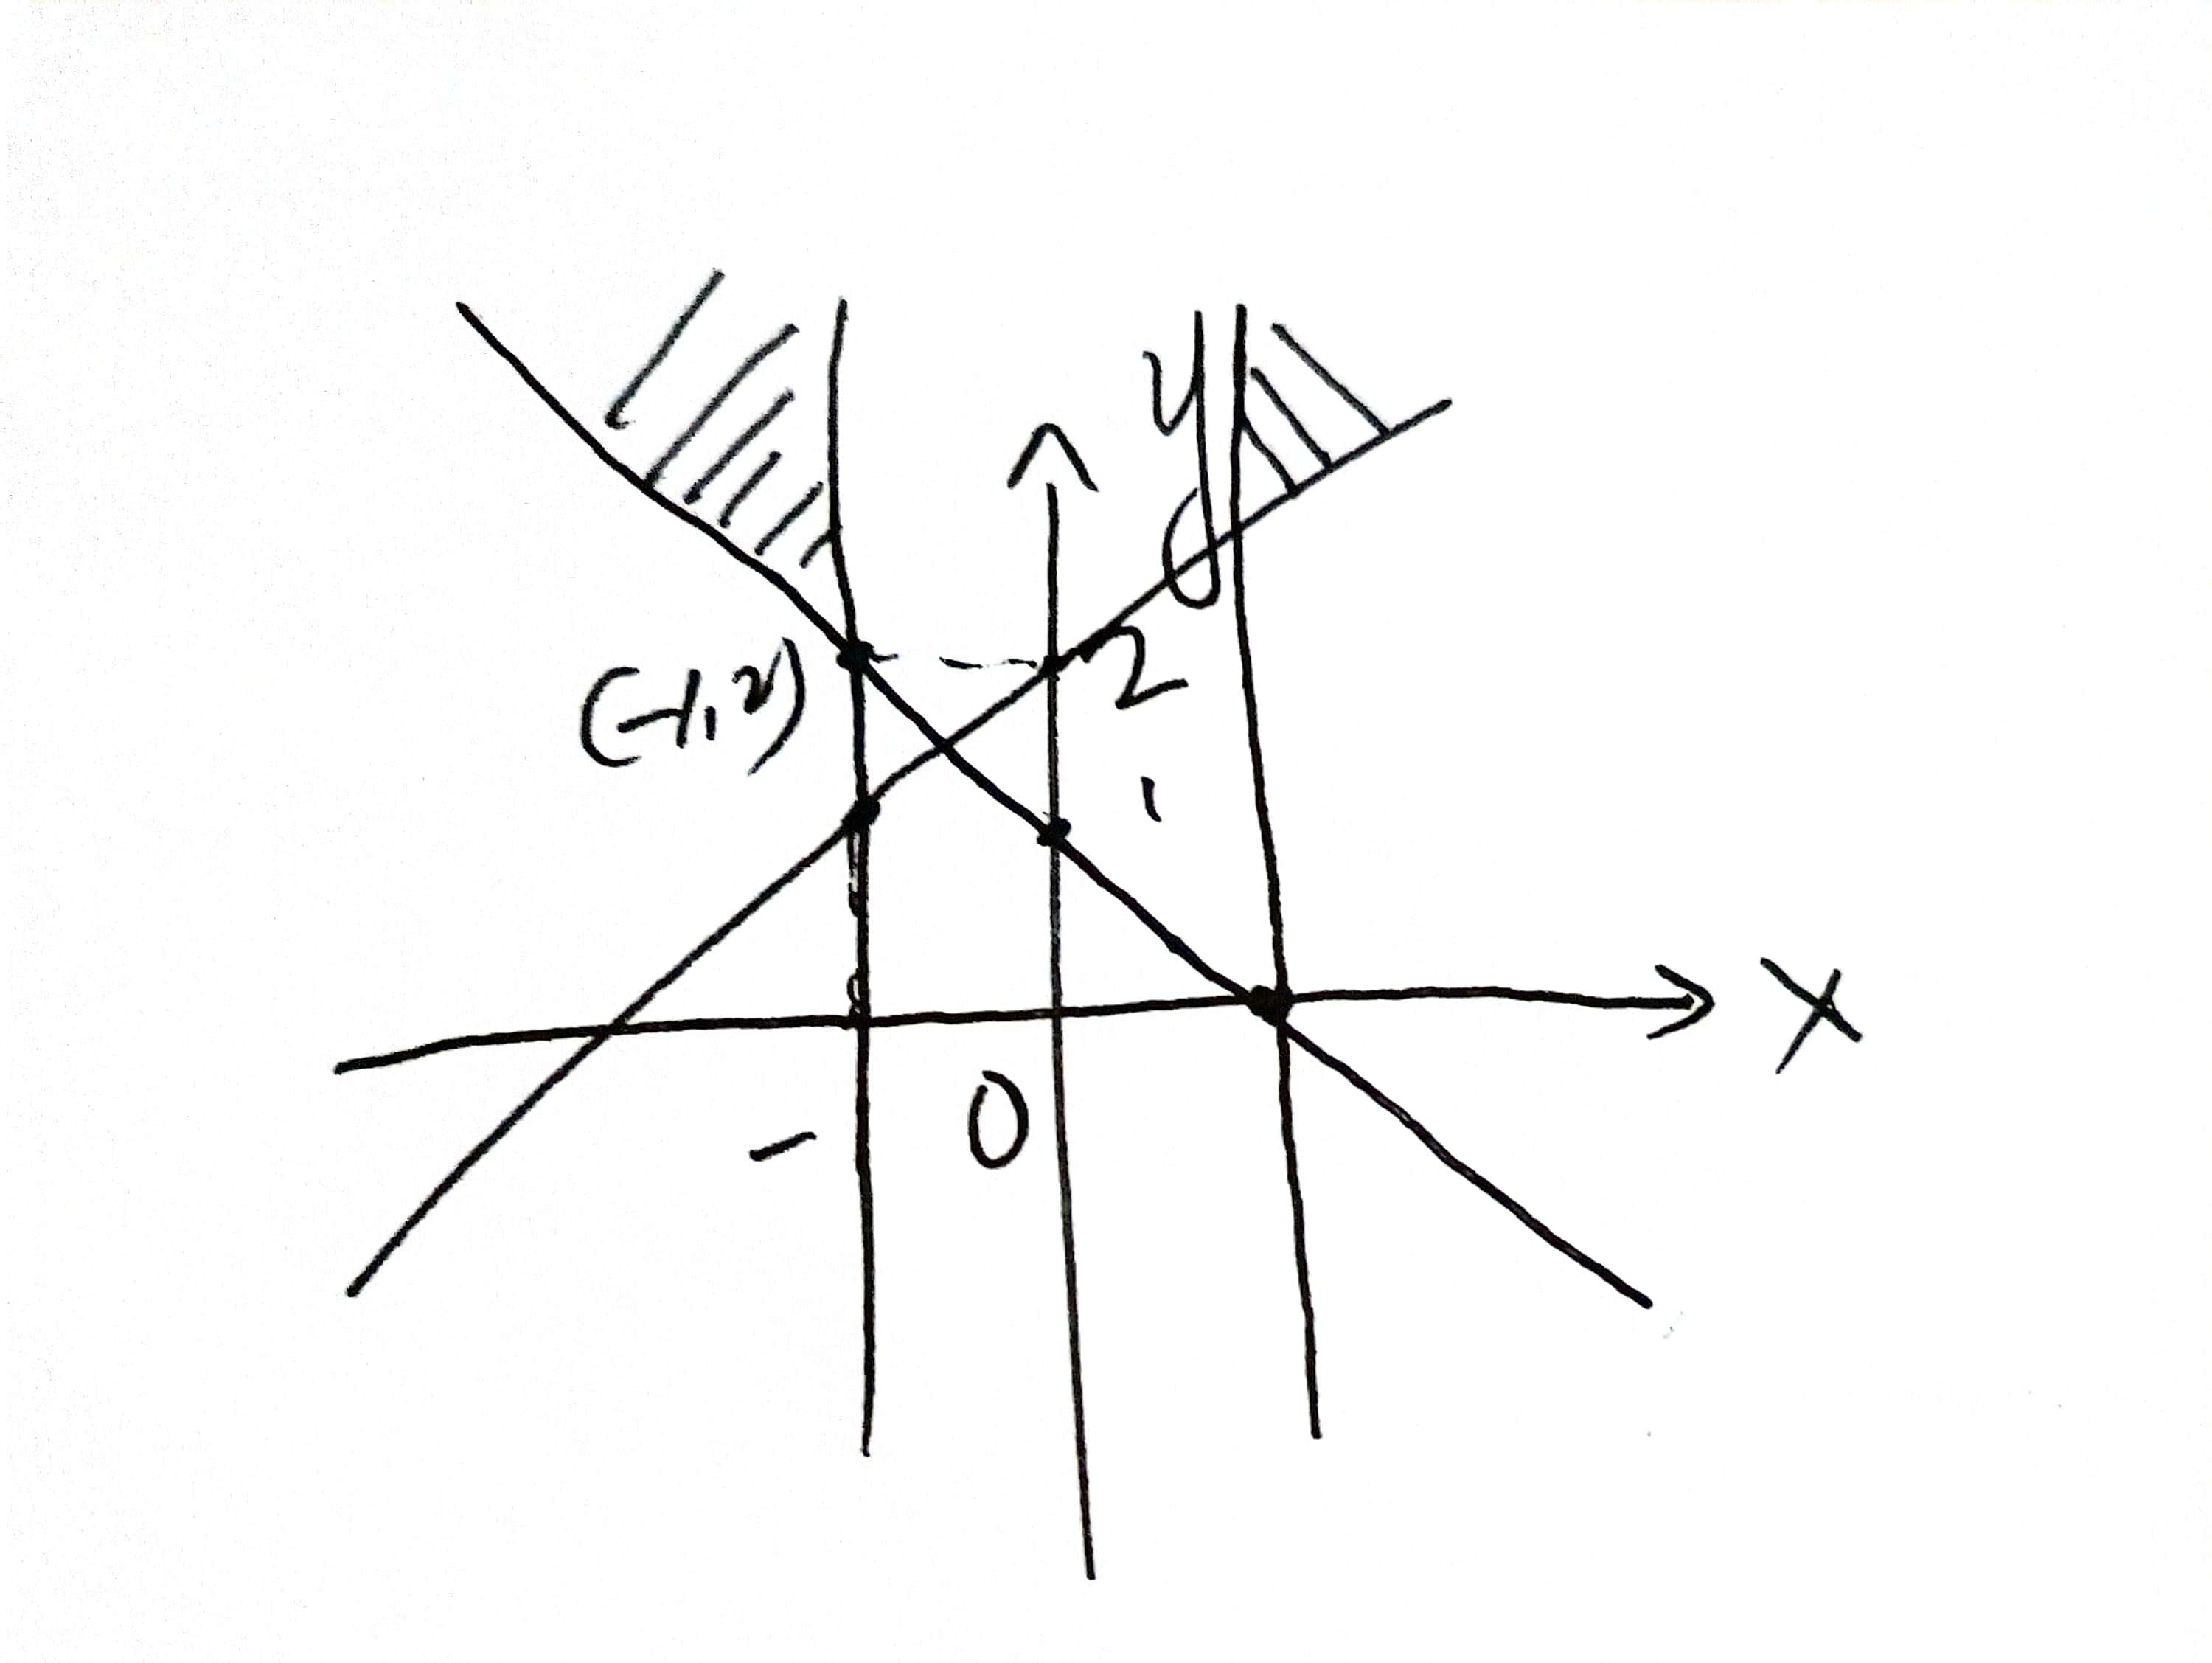 y
(-1,2)
2
1
X
-
0